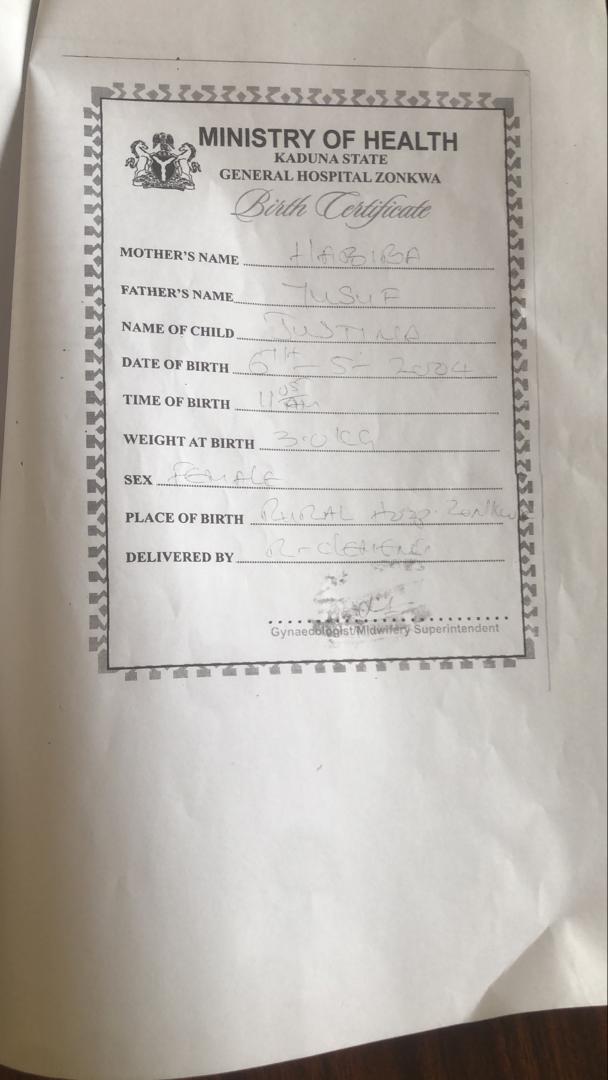 MINISTRY OF HEALTH
KADUNA STATE
GENERAL HOSPITAL ZONKWA
Birth Certificate
MOTHER'S NAME HABIBA
FATHER'S NAME YUSUF
NAME OF CHILD JUSTINA
DATE OF BIRTH 6TH - 5 - 2004
TIME OF BIRTH 11 05 AM
WEIGHT AT BIRTH 3.0KG
SEX FEMALE
PLACE OF BIRTH RURAL Hosp. Zonkwa
DELIVERED BY
Gynaecologist/Midwifery Superintendent